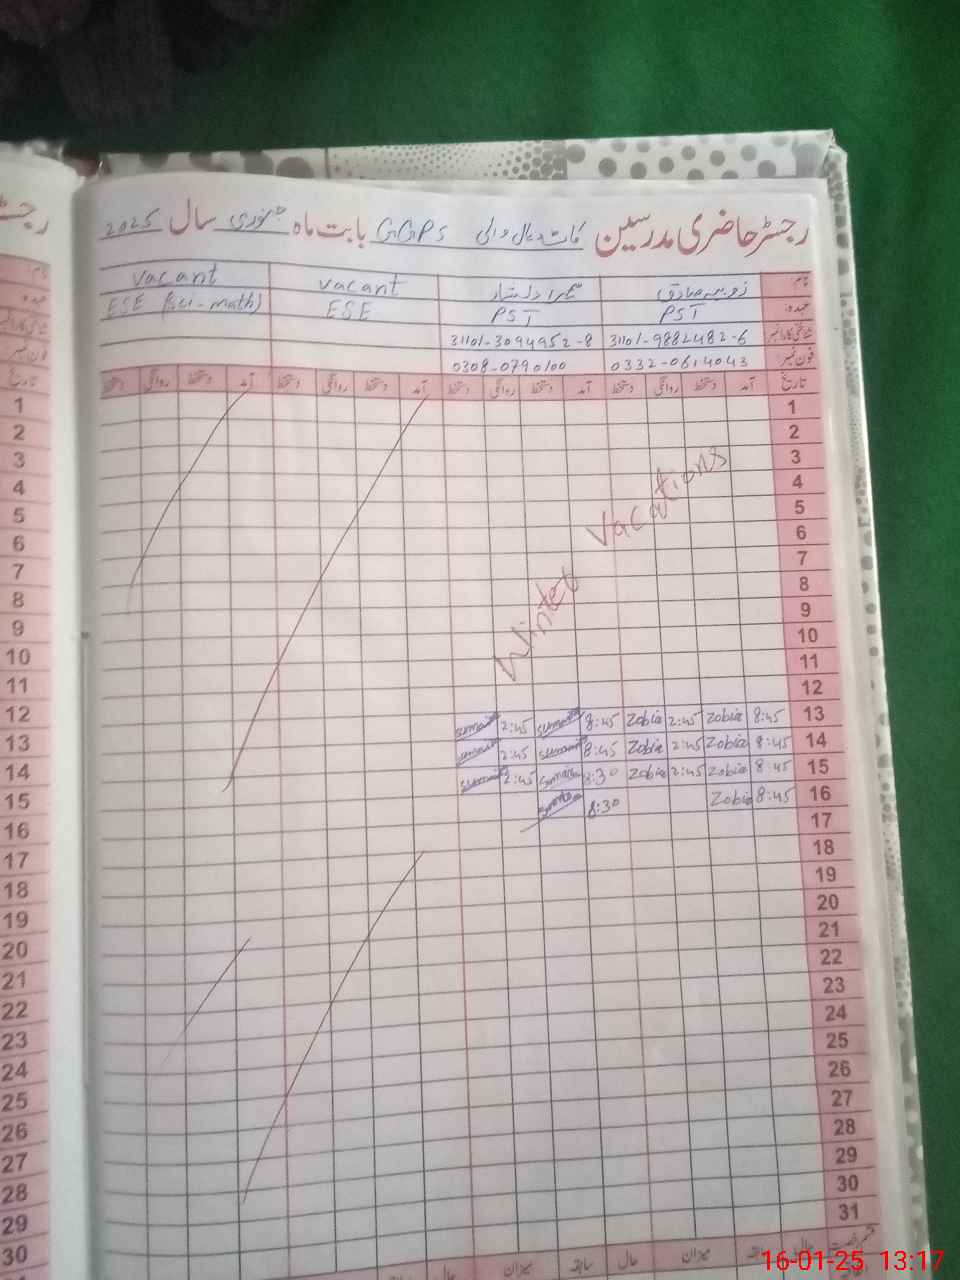 رجسٹر حاضری مدرسین GGPS بابت ماہ جنوری سال 2025
نام زوبیہ صادق vacant vacant
عہدہ PST PST ESE ESE (sci-math)
شناختی کارڈ نمبر 31101-9882482-6 31101-3094952-8
فون نمبر 0332-0614043 0308-0790100
تاریخ آمد دستخط روانگی دستخط آمد دستخط روانگی دستخط آمد دستخط روانگی دستخط آمد دستخط روانگی دستخط
1
2
3
4
5
6
7
8
9
10
11
12
Winter Vacations
13 8:45 Zobia 2:45 Zobia 8:45 2:45
14 8:45 Zobia 2:45 Zobia 8:45 2:45
15 8:45 Zobia 2:45 Zobia 8:30 2:45
16 8:45 Zobia 8:30
17
18
19
20
21
22
23
24
25
26
27
28
29
30
31
حال سابقہ میزان حال سابقہ میزان حال
رجسٹر
نام
عہدہ
شناختی کارڈ نمبر
فون نمبر
تاریخ
1
2
3
4
5
6
7
8
9
10
11
12
13
14
15
16
17
18
19
20
21
22
23
24
25
26
27
28
29
30
16-01-25 13:17